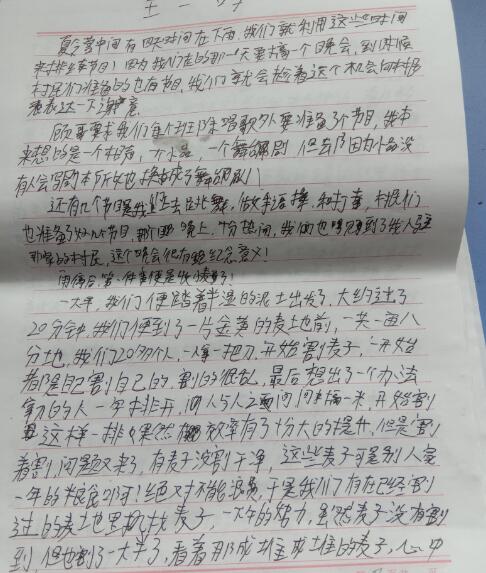 夏令营中间有四天时间在下雨,我们就利用这些时间
来排练节目!因为我们走的那一天要搞一个晚会,到时候
村民们准备的也有节目,我们就会趁着这个机会向村民
表达一下谢意
要求我们每个班除唱歌外要准备3个节目,我本
来想的是一个相声,一个小品,一个舞蹈剧,但是因为小品没
有人会写剧本所以也换成了舞蹈剧!
还有几个节目是我们去跳舞,做手语操,和打拳,村民们
也准备了节目,那个晚上,十分热闹,我们也见到了
的村民,这个晚会很有纪念意义!
雨停后第一件事便是收麦子!
一大早,我们便踏着半湿的泥土出发了,大约走了
20分钟,我们便到了一片金黄的麦地前,一共一亩八
分地,我们20多个人,一人拿一把刀,开始割麦子,一开始
都是自己割自己的,割的很乱,最后想出了一个办法
的人一字排开,人与人之间间隔一米,开始割
这样一排,果然效率有了十分大的提升,但是割
着割着问题又来了,有麦子没割干净,这些麦子可是别人家
一年的粮食啊!绝对不能浪费,于是我们有在已经割
过的麦地里找麦子,一大早的努力,虽然麦子没有割
到,但也割了一大半了,看着那成堆成堆的麦子,心中